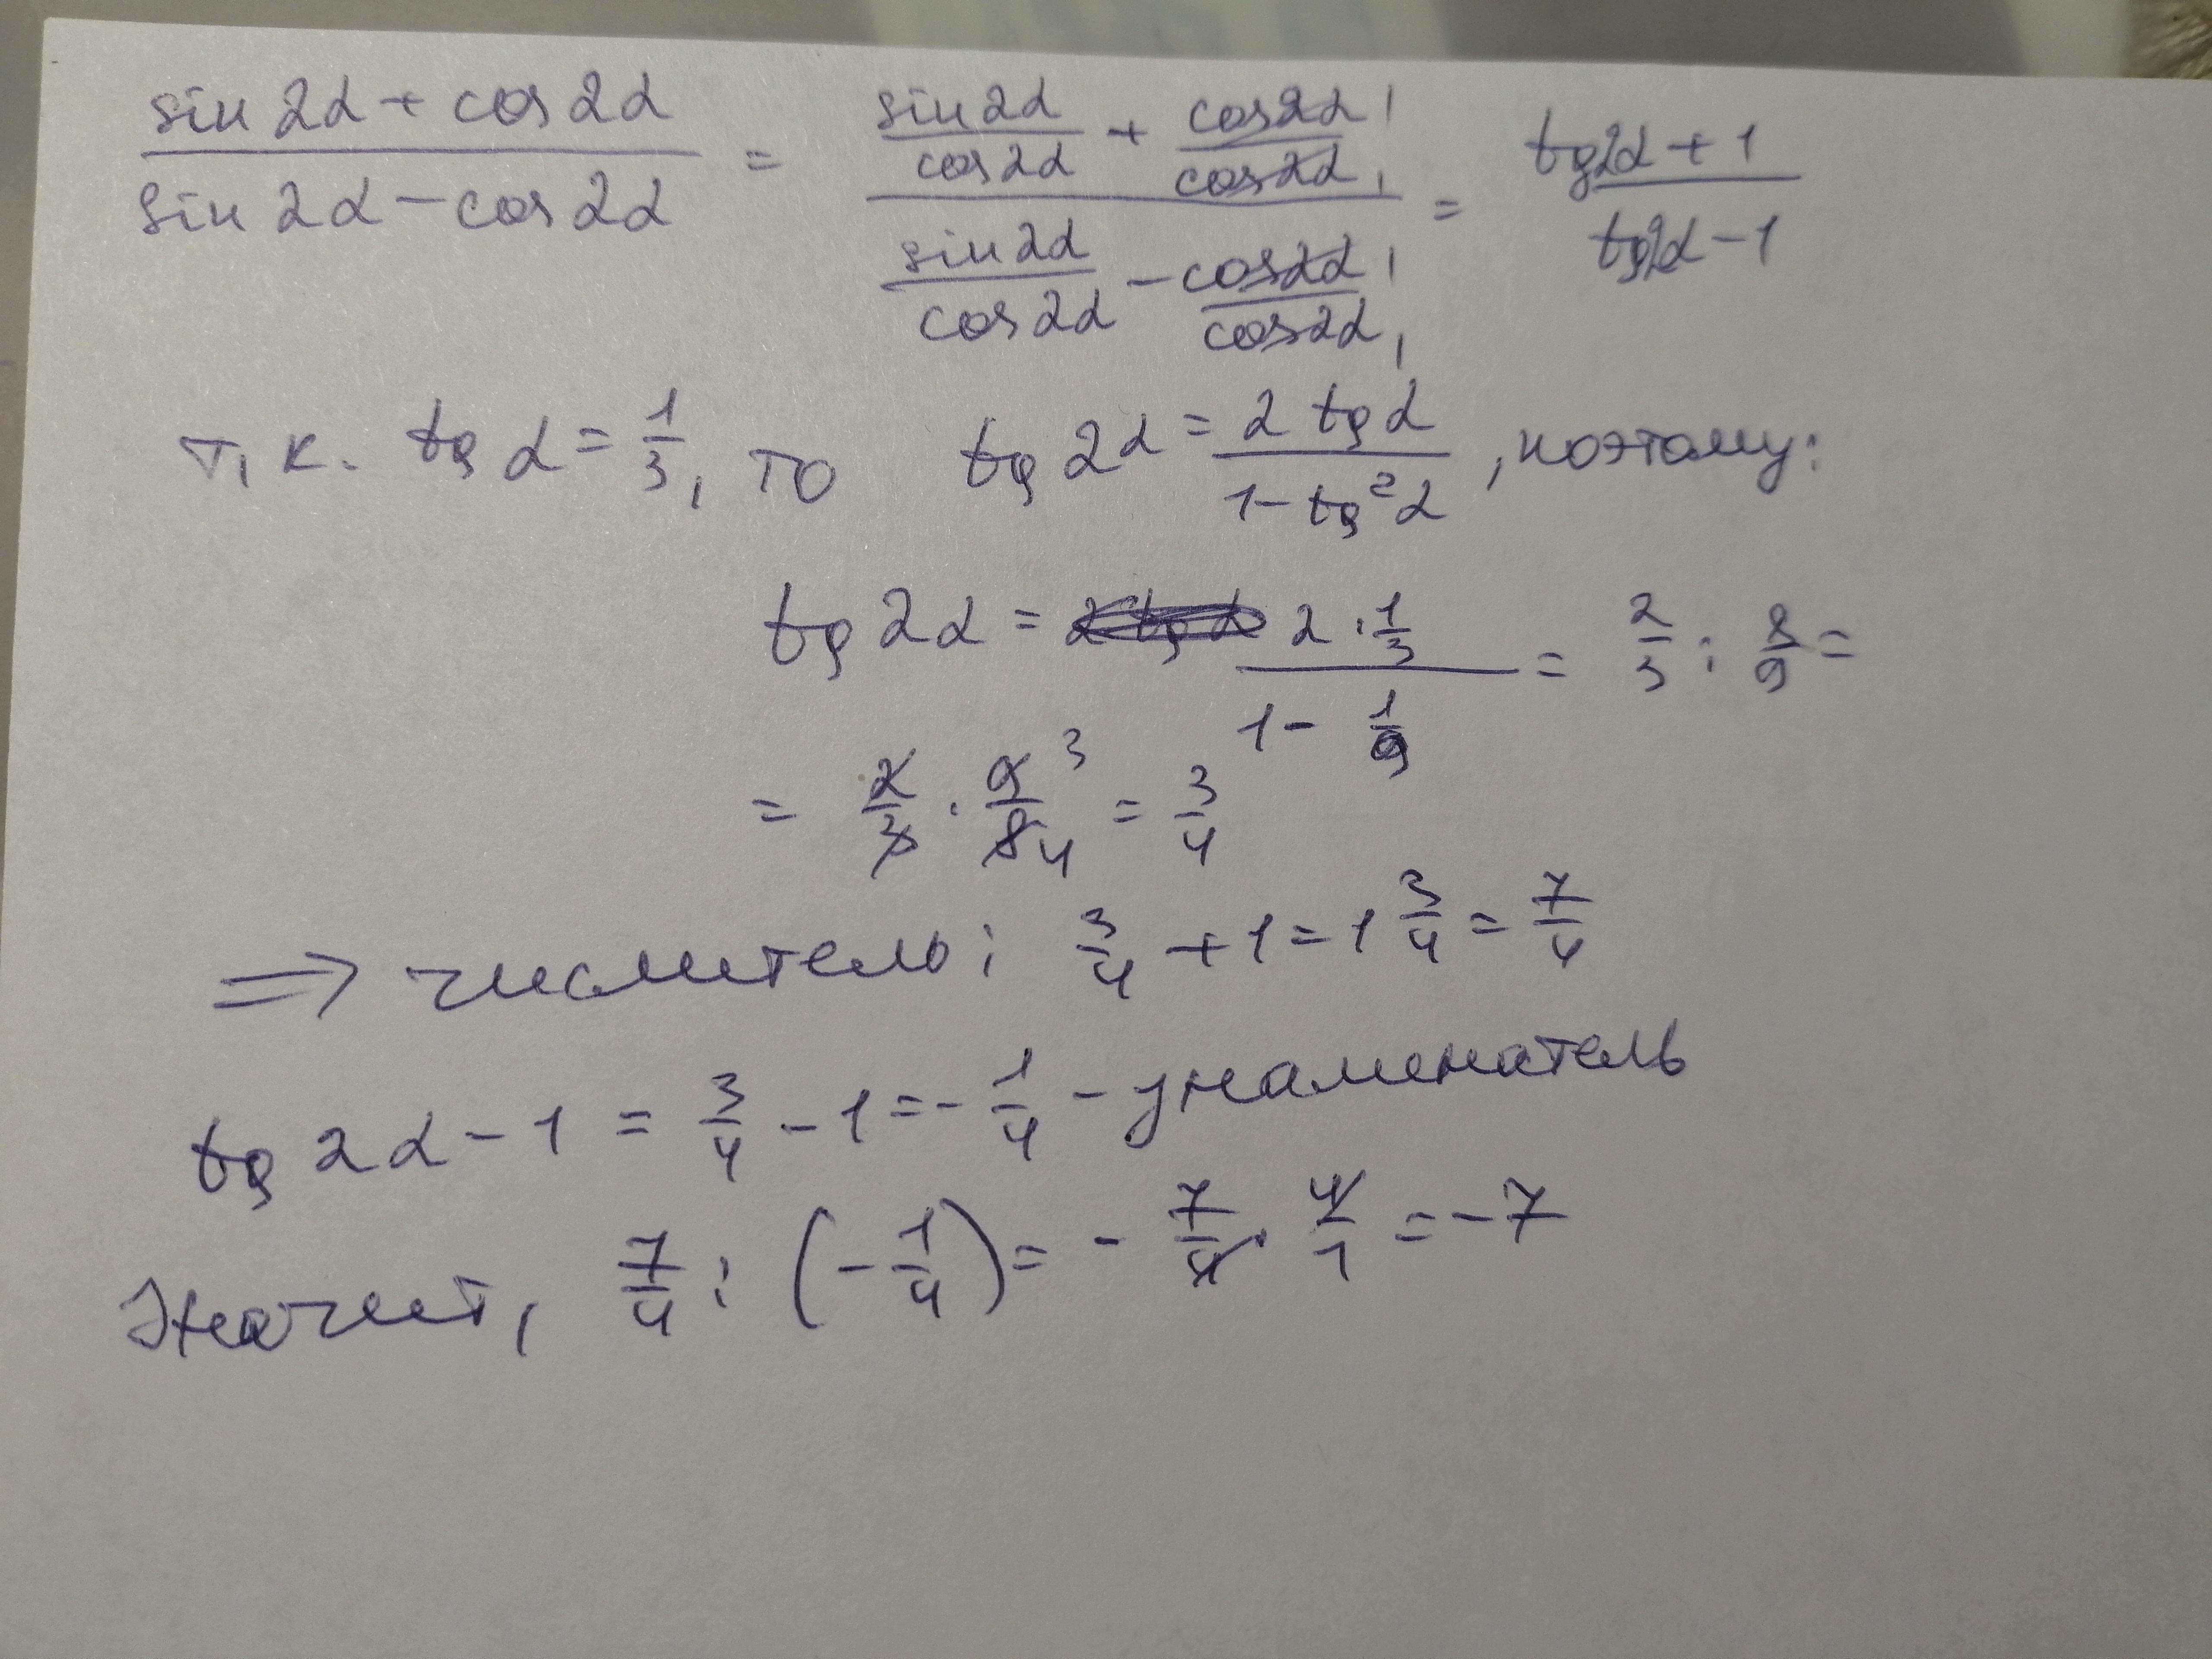 (sin 2α + cos 2α)/(sin 2α − cos 2α) = (sin 2α/cos 2α + cos 2α/cos 2α)/(sin 2α/cos 2α − cos 2α/cos 2α) = (tg 2α + 1)/(tg 2α − 1)
т.к. tg α = 1/3, то tg 2α = (2 tg α)/(1 − tg²α), поэтому:
tg 2α = (2 · 1/3)/(1 − 1/9) = 2/3 : 8/9 =
= 2/3 · 9/8 = 3/4
⇒ числитель: 3/4 + 1 = 1 3/4 = 7/4
tg 2α − 1 = 3/4 − 1 = − 1/4 − знаменатель
Значит, 7/4 : (− 1/4) = − 7/4 · 4/1 = −7